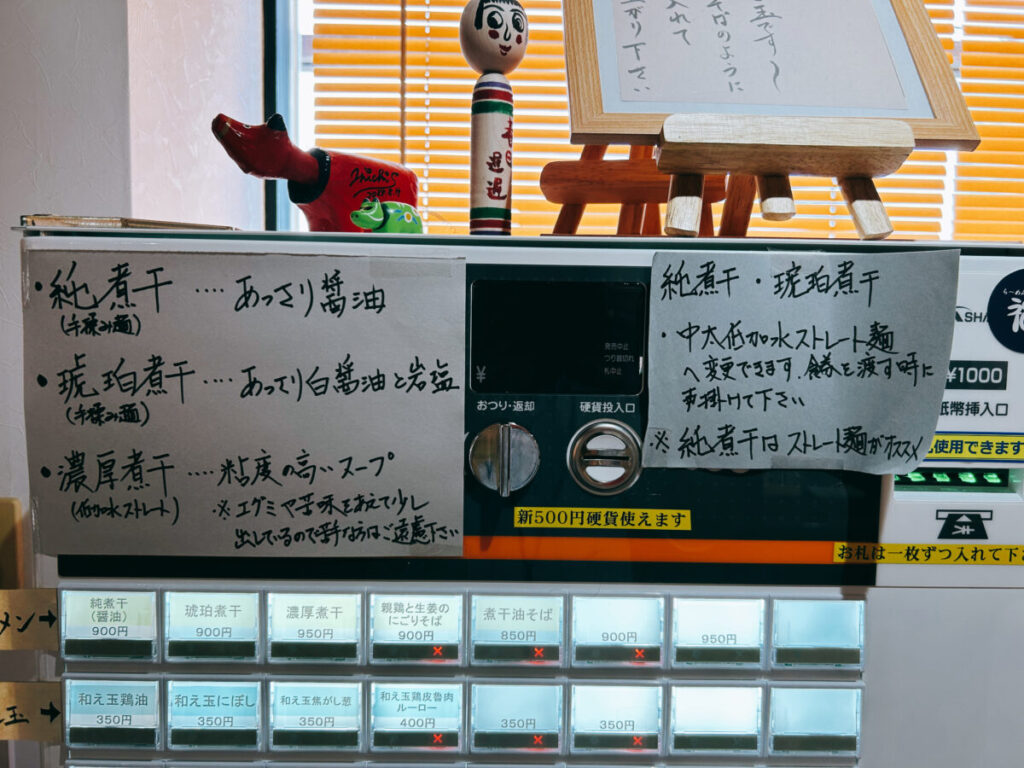 玉です〜
そばのように
入れて
がり下さい
春日
遅遅
・純煮干 …‥ あっさり醤油
(手揉み麺)
・琥珀煮干 …‥ あっさり白醤油と岩塩
(手揉み麺)
・濃厚煮干 …‥ 粘度の高いスープ
(低加水ストレート)
※エグミや苦味をあえて少し
出しているので苦手な方はご遠慮下さい
発売中止
つり銭切れ
札中止
¥
おつり・返却
硬貨投入口
新500円硬貨使えます
純煮干・琥珀煮干
・中太低加水ストレート麺
へ変更できます。食券を渡す時に
声掛けて下さい
※純煮干はストレート麺がオススメ
らーめん
¥1000
紙幣挿入口
使用できます
お札は一枚ずつ入れて下
メン→
純煮干
(醤油)
900円
琥珀煮干
900円
濃厚煮干
950円
親鶏と生姜の
にごりそば
900円
煮干油そば
850円
900円
950円
玉→
和え玉鶏油
350円
和え玉にぼし
350円
和え玉焦がし葱
350円
和え玉鶏皮魯肉
ルーロー
400円
350円
350円